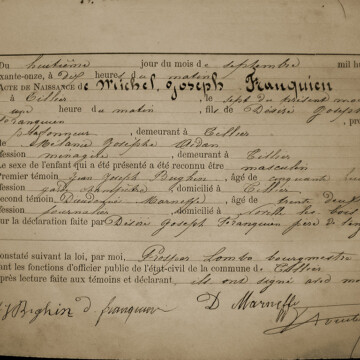 Du huitième jour du mois de septembre mil h
xante-onze, à dix heures du matin
ACTE DE NAISSANCE de Michel Joseph Franquien
à Tillier, le sept du présent mois
une heure du matin, fils de Désiré Joseph
Franquien
plafonneur, demeurant à Tillier
de Mélanie Josèphe Ardan
fession ménagère, demeurant à Tillier
Le sexe de l'enfant qui a été présenté a été reconnu être masculin
Premier témoin Jean Joseph Bughin, âgé de cinquante
fession garde champêtre, domicilié à Tillier
second témoin Dieudonné Marneffe, âgé de trente deux
fession journalier, domicilié à
sur la déclaration faite par Désiré Joseph Franquien père de l'en
Constaté suivant la loi, par moi, Prosper Lomba bourgmestre
ant les fonctions d'officier public de l'état-civil de la commune de Tillier
après lecture faite aux témoins et déclarant, ils ont signé avec moi
J J Bughin d franquien D Marneffe